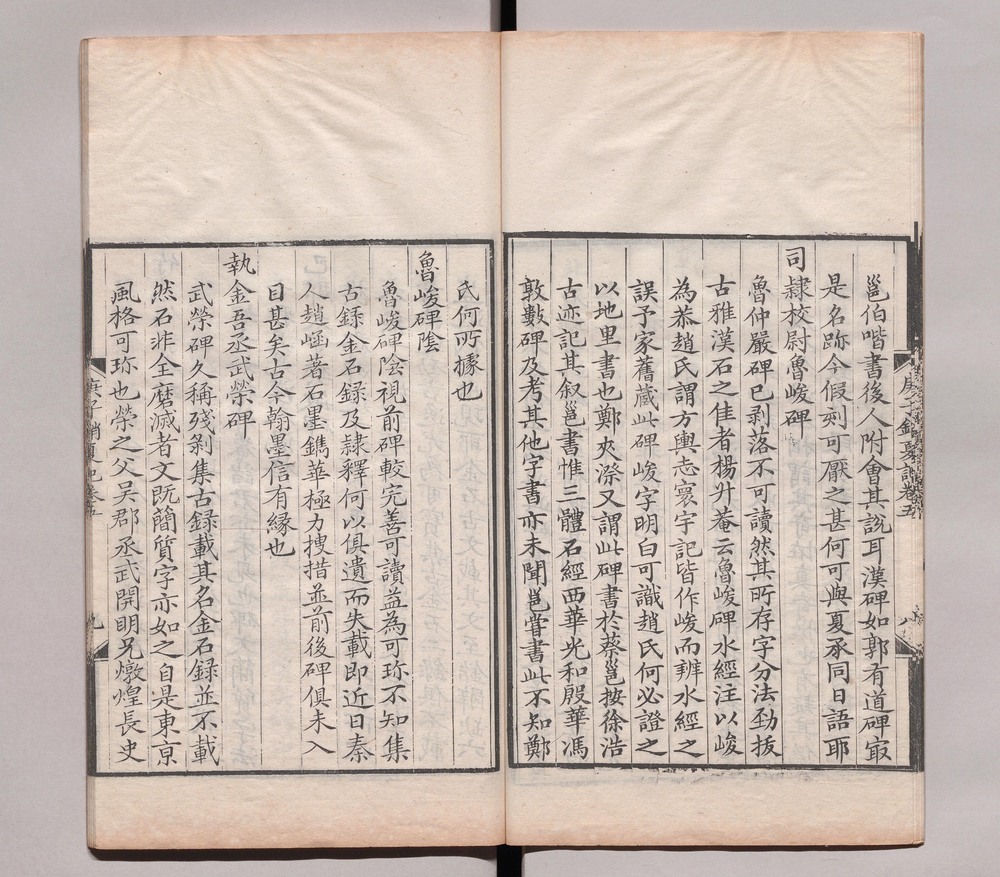 邕伯喈書後人附會其說耳漢碑如郭有道碑㝡
是名跡今假刻可厭之甚何可與夏承同日語耶
司隸校尉魯峻碑
魯仲嚴碑已剥落不可讀然其所存字分法勁拔
古雅漢石之佳者楊升菴云魯峻碑水經注以峻
為恭趙氏謂方輿志寰宇記皆作峻而辨水經之
誤予家舊蔵此碑峻字明白可識趙氏何必證之
以地里書也鄭夾漈又謂此碑書於蔡邕按徐浩
古迹記其叙邕書惟三體石經西華光和殷華馮
敦數碑及考其他字書亦未聞邕嘗書此不知鄭
氏何所據也
魯峻碑陰
魯峻碑陰視前碑較完善可讀益為可珎不知集
古録金石録及隸釋何以俱遺而失載即近日秦
人趙崡著石墨鐫華極力搜措並前後碑俱未入
目甚矣古今翰墨信有緣也
執金吾丞武榮碑
武榮碑久稱殘剝集古録載其名金石録並不載
然石非全磨滅者文既簡質字亦如之自是東京
風格可珎也榮之父吳郡丞武開明兄燉煌長史
庚子銷夏記卷五
九